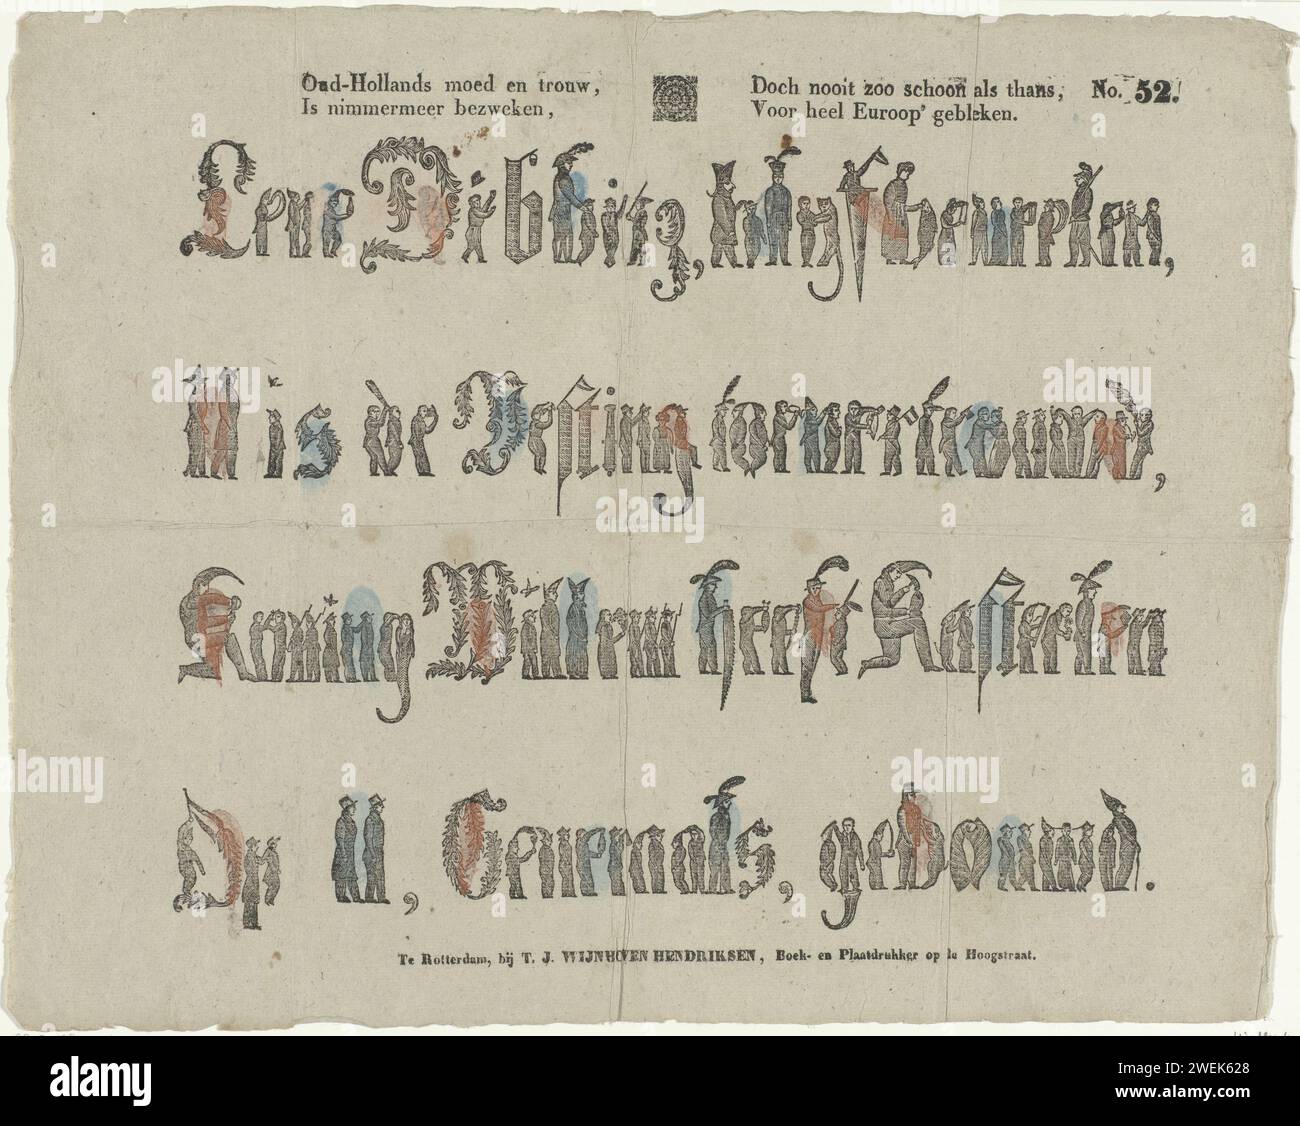 Oud-Hollands moed en trouw,
Is nimmermeer bezweken,
Doch nooit zoo schoon als thans,
Voor heel Euroop' gebleken.
No. 52.
is de Vesting toevertrouwd,
Koning Willem heeft Kasteelen
Op u, Generaals, gebouwd.
Te Rotterdam, bij T. J. WIJNHOVEN HENDRIKSEN, Boek- en Plaatdrukker op de Hoogstraat.
alamy
Image ID: 2WEK628
www.alamy.com